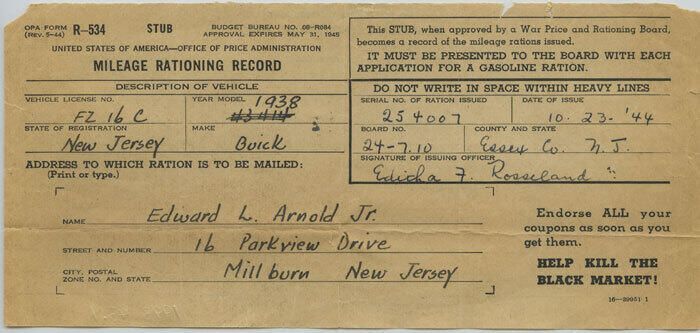 OPA FORM R-534 STUB
(REV. 5-44)
BUDGET BUREAU NO. 08-R084
APPROVAL EXPIRES MAY 31, 1945
UNITED STATES OF AMERICA—OFFICE OF PRICE ADMINISTRATION
MILEAGE RATIONING RECORD
DESCRIPTION OF VEHICLE
VEHICLE LICENSE NO.
FZ 16 C
YEAR MODEL
1938
STATE OF REGISTRATION
New Jersey
MAKE
Buick
ADDRESS TO WHICH RATION IS TO BE MAILED:
(Print or type.)
This STUB, when approved by a War Price and Rationing Board,
becomes a record of the mileage rations issued.
IT MUST BE PRESENTED TO THE BOARD WITH EACH
APPLICATION FOR A GASOLINE RATION.
DO NOT WRITE IN SPACE WITHIN HEAVY LINES
SERIAL NO. OF RATION ISSUED
254007
DATE OF ISSUE
10-23-'44
BOARD NO.
24-7.10
COUNTY AND STATE
Essex Co. N.J.
SIGNATURE OF ISSUING OFFICER
F. Rosseland
NAME Edward L. Arnold Jr.
STREET AND NUMBER 16 Parkview Drive
CITY, POSTAL
ZONE NO. AND STATE Millburn New Jersey
Endorse ALL your
coupons as soon as you
get them.
HELP KILL THE
BLACK MARKET!
16—39951 1